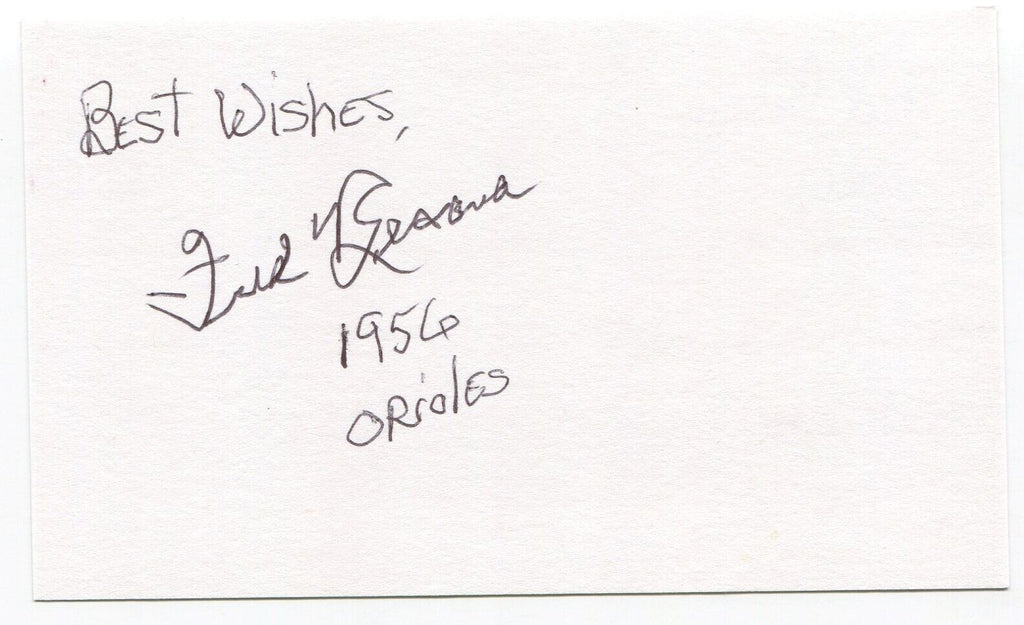 Best Wishes,
Fred Besana
1956
Orioles